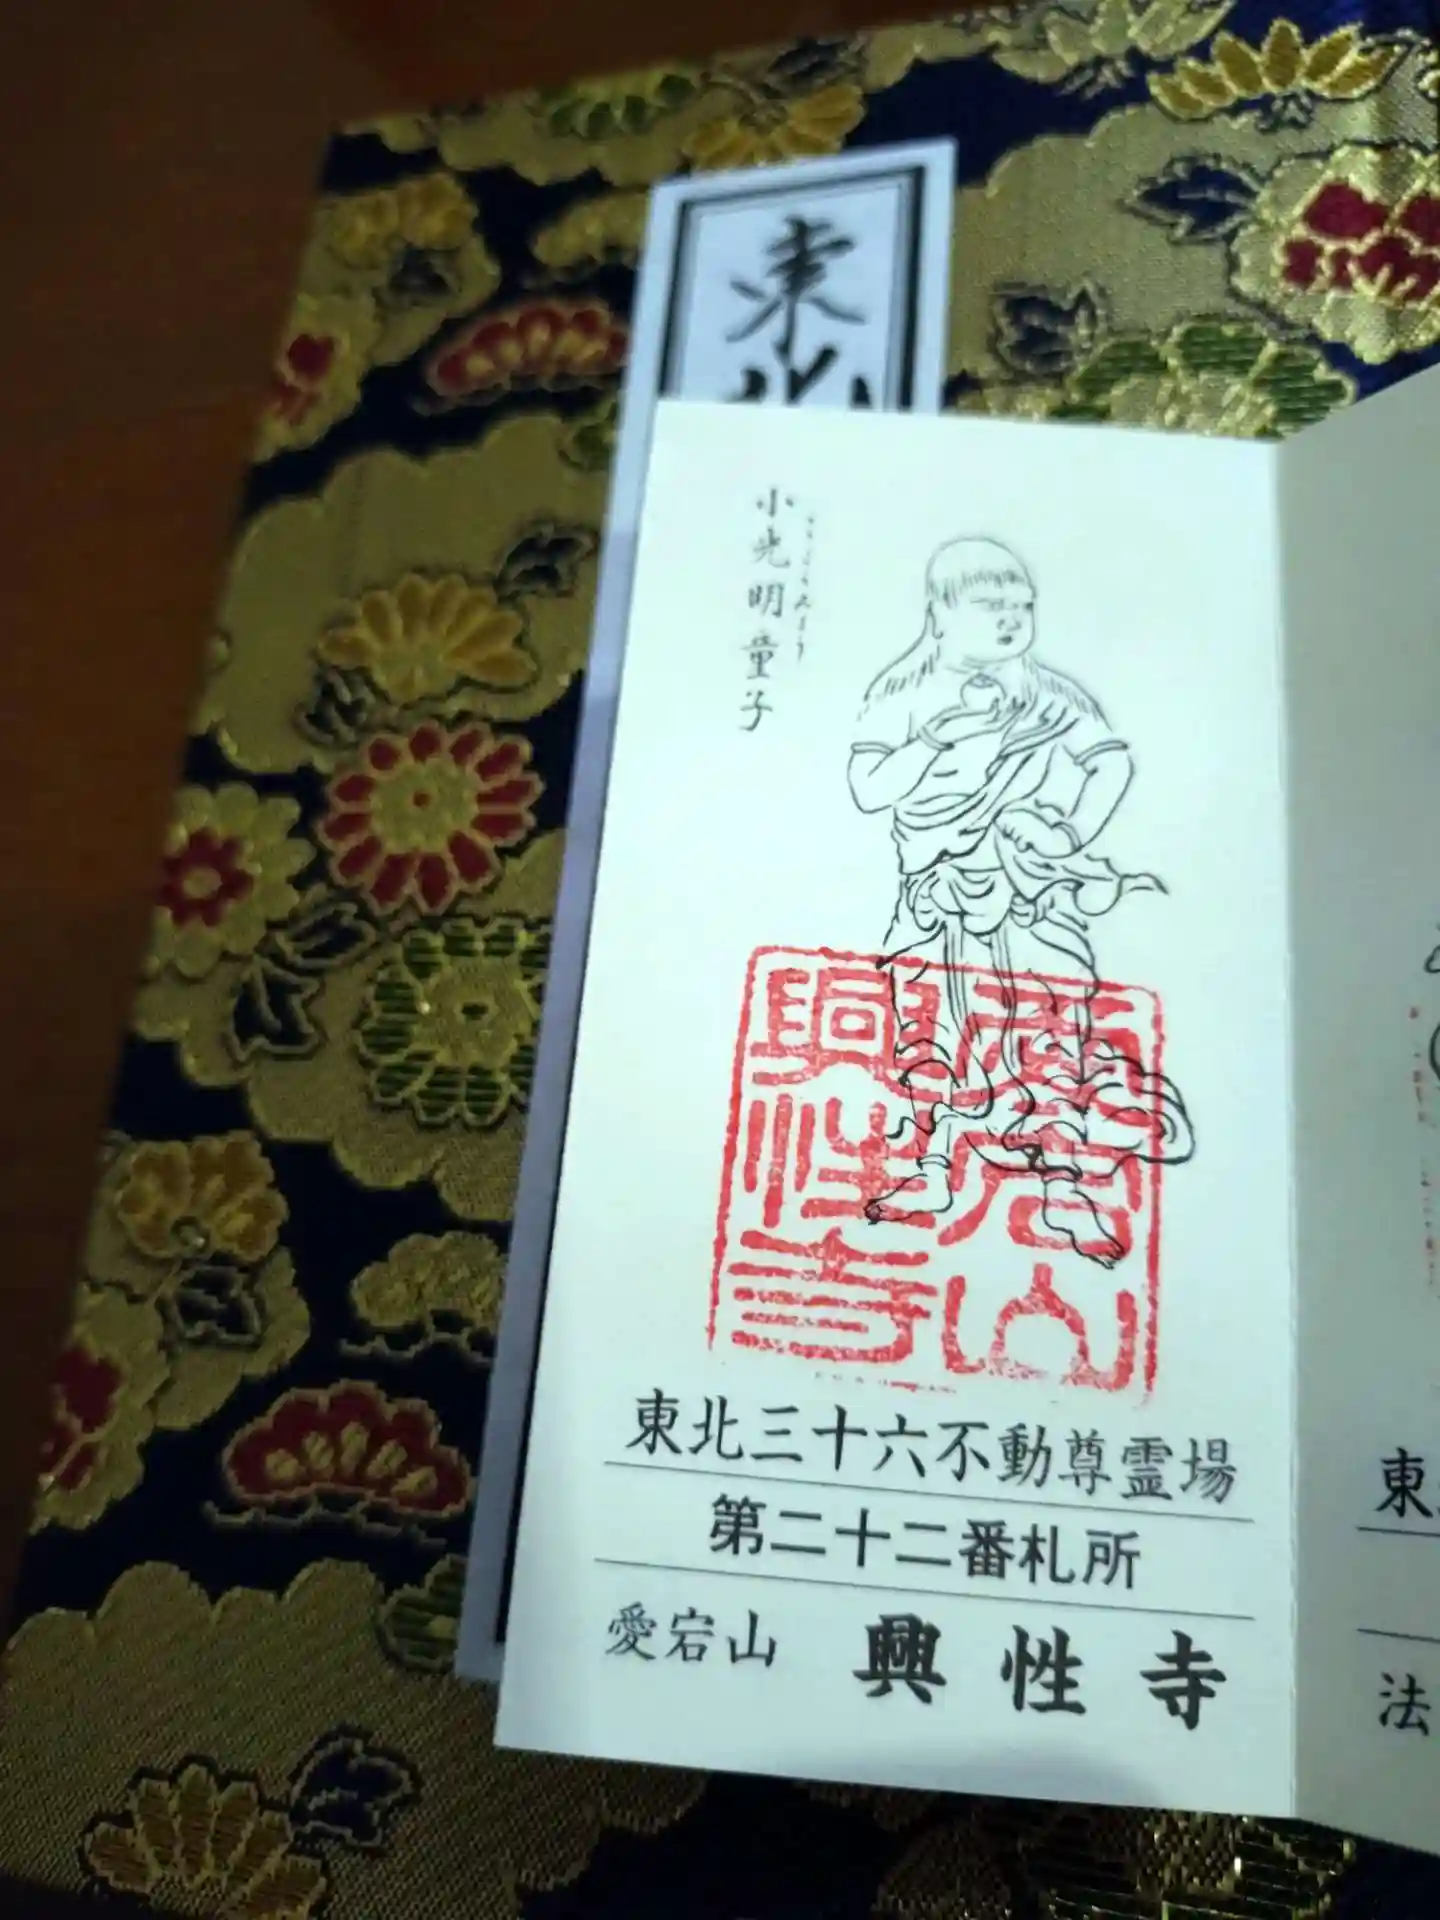 東北
小光明童子
愛宕山
興性寺
東北三十六不動尊霊場
第二十二番札所
愛宕山 興性寺
東
法